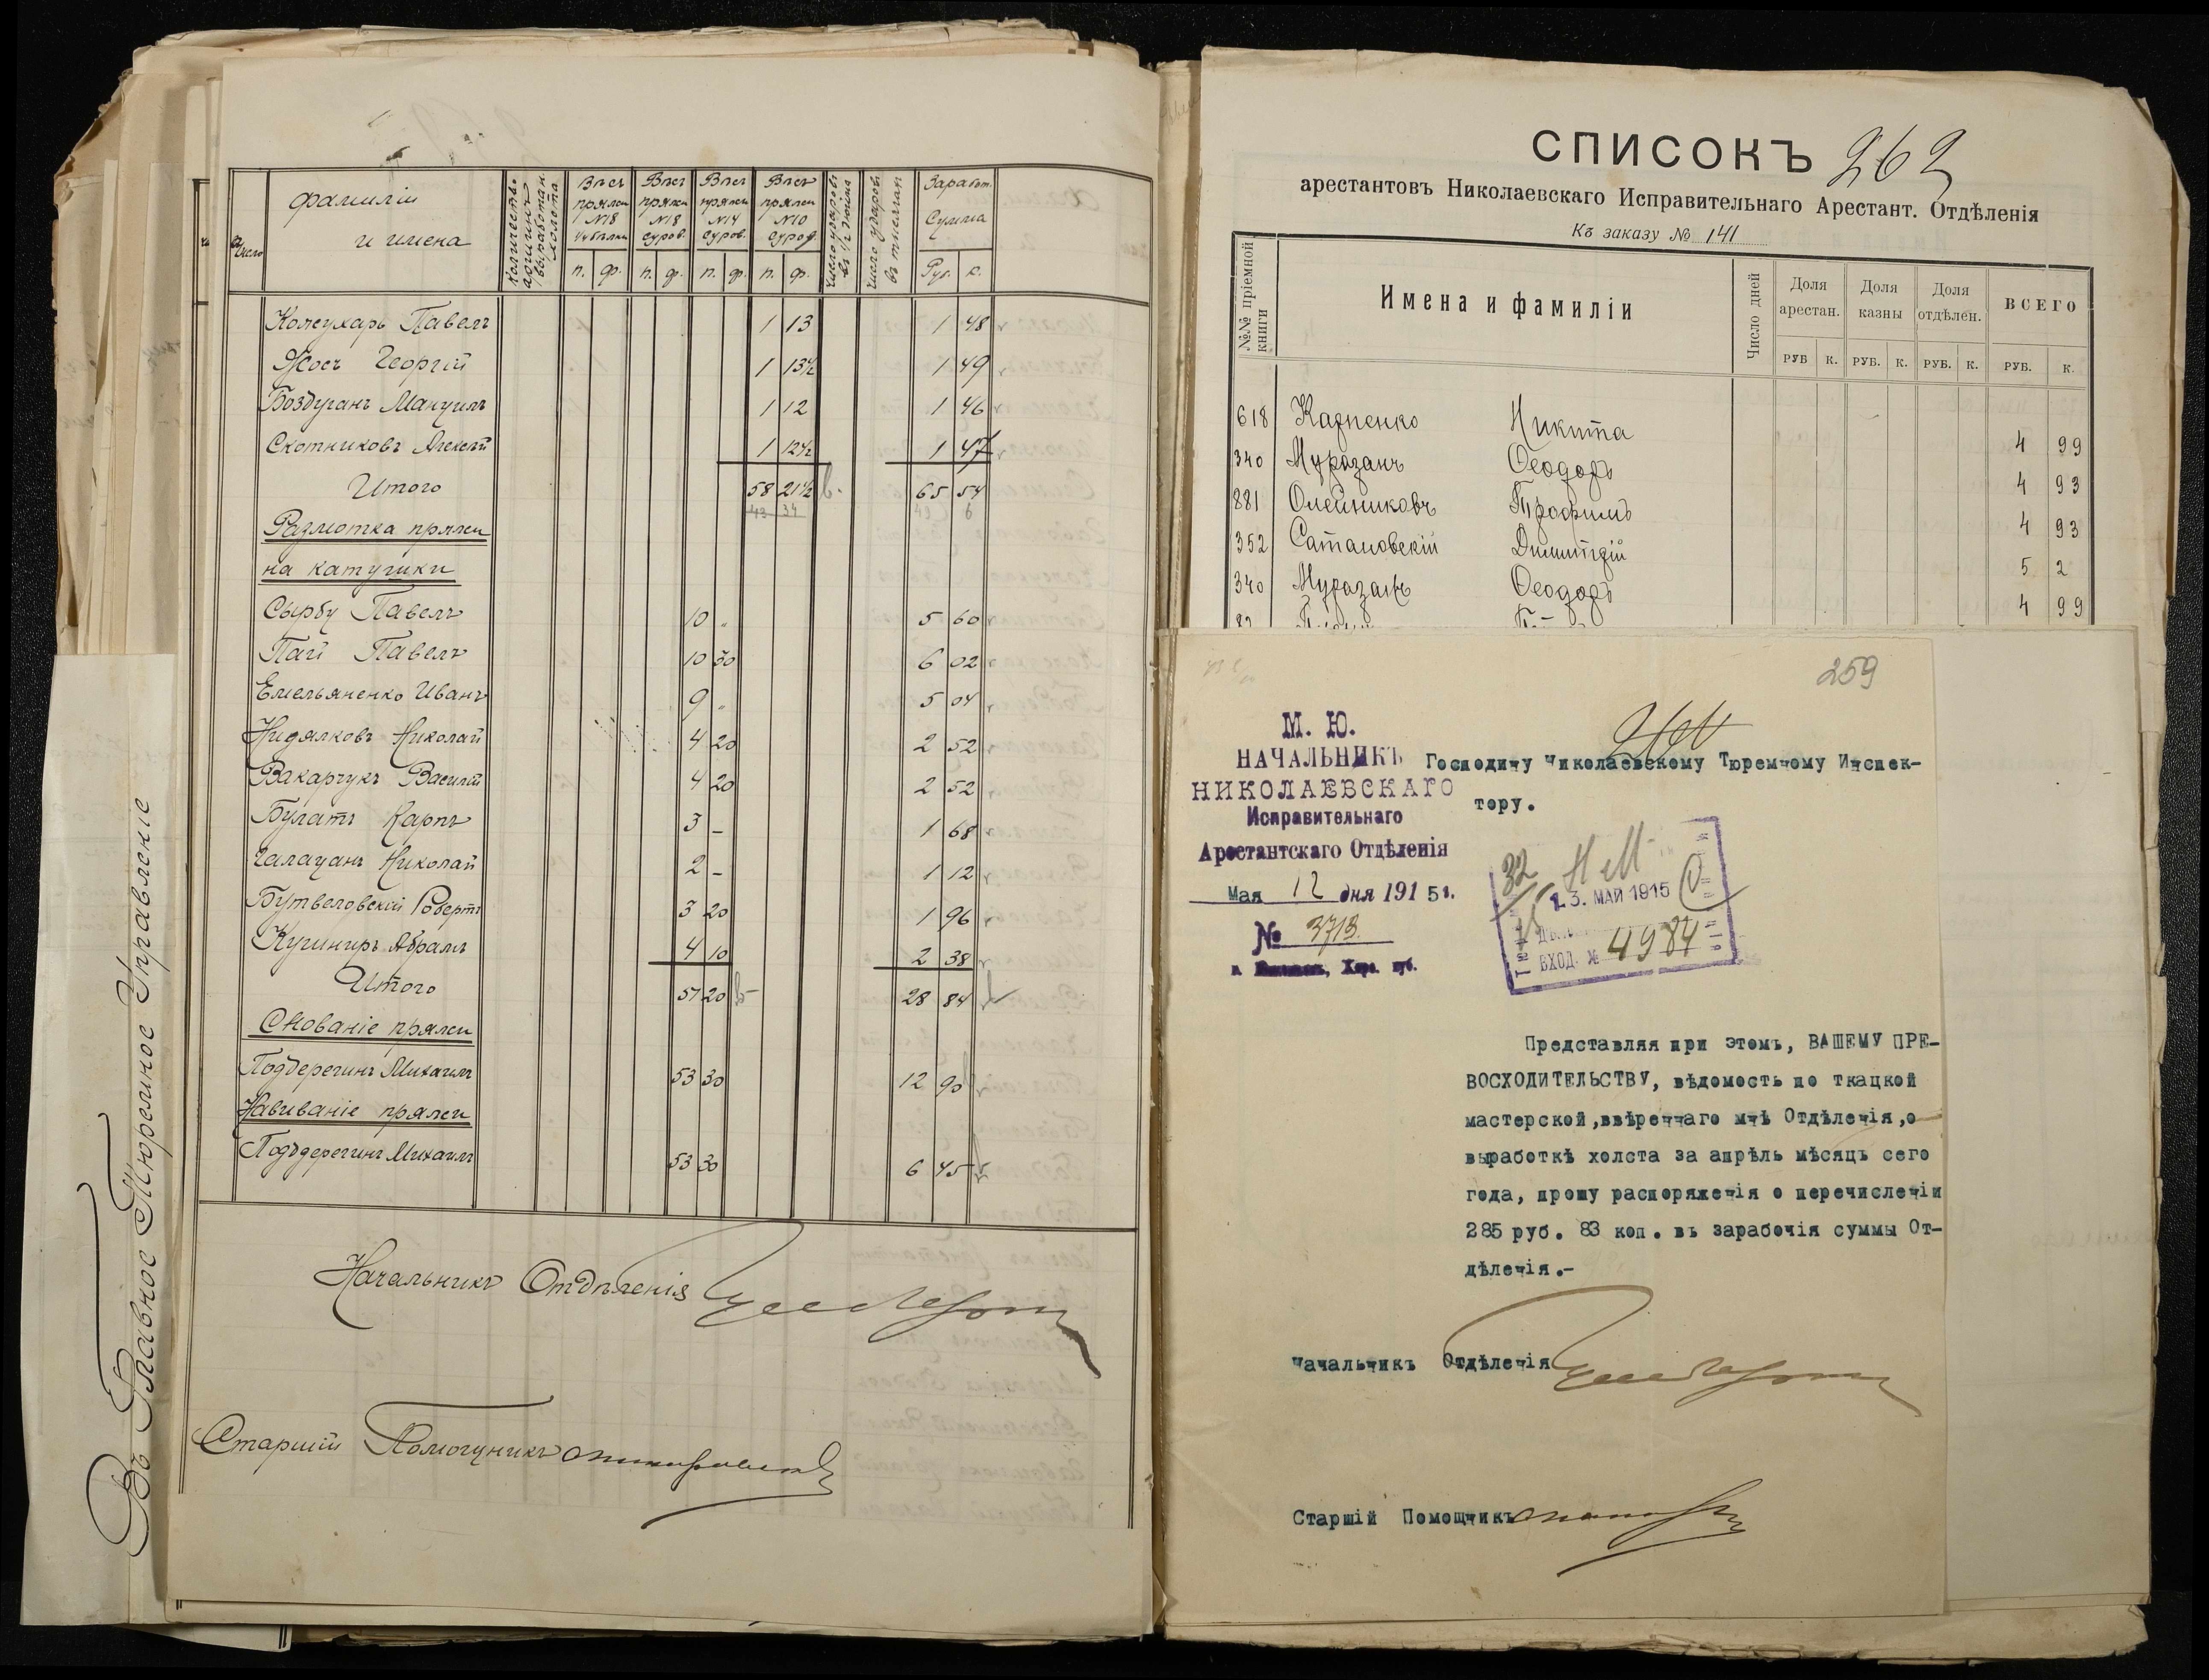 Въ Главное Тюремное Управленіе
Число
фамиліи
и имена
Количество
аршинъ
выработан.
холста
Вѣсъ
пряжи
№18
Вѣсъ
пряжи
№18
суров.
Вѣсъ
пряжи
№14
суров.
Вѣсъ
пряжи
№10
суров.
Число ударовъ
въ 1/2 дюйма
Число ударовъ
въ тысячах
Заработ.
Сумма
п. ф. п. ф. п. ф. п. ф. Руб. к.
Кожухарь Павелъ 1 13 1 48
Жосъ Георгій 1 13½ 1 49
Боздуганъ Мануилъ 1 12 1 46
Скотниковъ Алексѣй 1 12½ 1 47
Итого 58 21½ 65 54
43 34 49 6
Размотка пряжи
на катушки
Сырбу Павелъ 10 „ 5 60
Пай Павелъ 10 30 6 02
Емельяненко Иванъ 9 „ 5 04
Нидялковъ Николай 4 20 2 52
Вакарчукъ Василій 4 20 2 52
Булатъ Карпъ 3 – 1 68
Галацанъ Николай 2 – 1 12
Бутвеловскій Робертъ 3 20 1 96
Кушниръ Абрамъ 4 10 2 38
Итого 51 20 28 84
Снованіе пряжи
Поддерегинъ Михаилъ 53 30 12 90
Навиваніе пряжи
Поддерегинъ Михаилъ 53 30 6 45
Начальникъ Отдѣленія
Старшій Помощникъ
СПИСОКЪ 262
арестантовъ Николаевскаго Исправительнаго Арестант. Отдѣленія
Къ заказу № 141
№№ пріемной
книги
Имена и фамиліи
Число дней
Доля
арестан.
Доля
казны
Доля
отдѣлен.
ВСЕГО
РУБ К. РУБ. К. РУБ. К. РУБ. К.
618 Карпенко Никита 4 99
340 Муразанъ Ѳеодоръ 4 93
881 Олейниковъ Трофимъ 4 93
352 Сатановскій Димитрій 5 2
340 Муразанъ Ѳеодоръ 4 99
259
М. Ю.
НАЧАЛЬНИКЪ
НИКОЛАЕВСКАГО
Исправительнаго
Арестантскаго Отдѣленія
Мая 12 дня 1915 г.
№ 3713.
Херс. губ.
Господину Николаевскому Тюремному Инспек-
тору.
32
13. МАЙ 1915
ВХОД. № 4984
Представляя при этомъ, ВАШЕМУ ПРЕ-
ВОСХОДИТЕЛЬСТВУ, вѣдомость по ткацкой
мастерской,ввѣреннаго мнѣ Отдѣленія,о
выработкѣ холста за апрѣль мѣсяцъ сего
года, прошу распоряженія о перечисленіи
285 руб. 83 коп. въ зарабочія суммы От-
дѣленія.-
Начальникъ Отдѣленія
Старшій Помощникъ